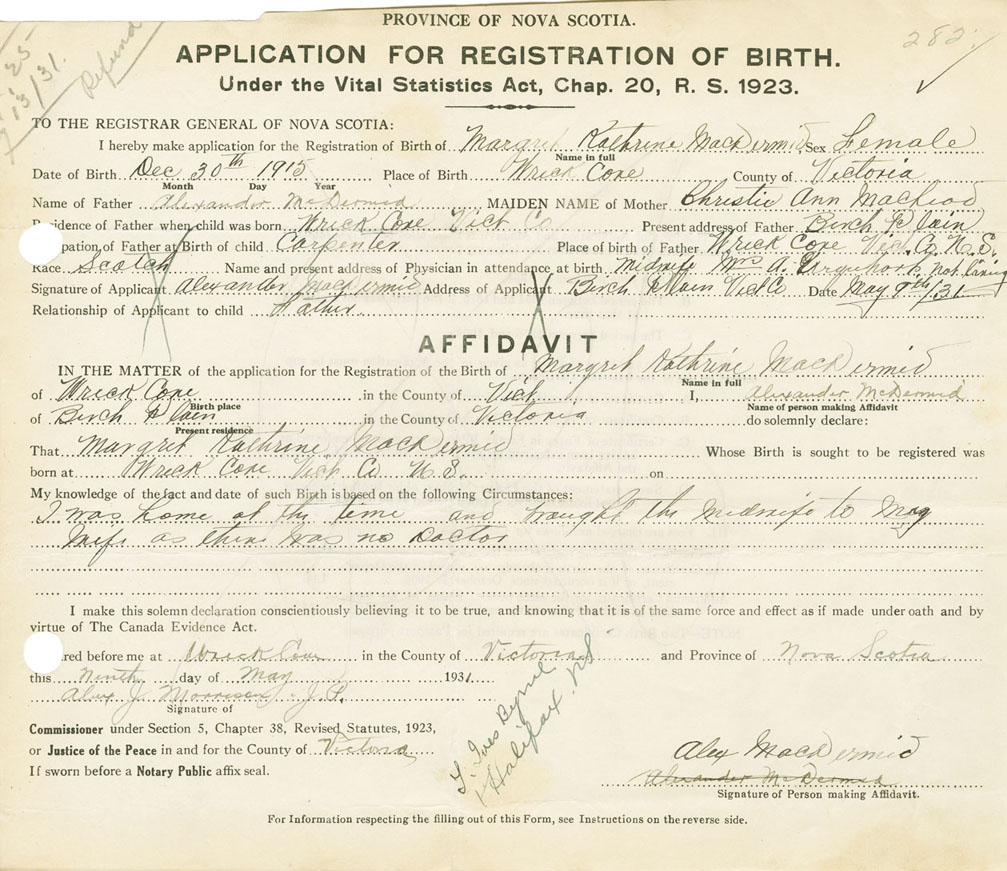 PROVINCE OF NOVA SCOTIA.
282
25
13/31.
Refund
APPLICATION FOR REGISTRATION OF BIRTH.
Under the Vital Statistics Act, Chap. 20, R. S. 1923.
TO THE REGISTRAR GENERAL OF NOVA SCOTIA:
I hereby make application for the Registration of Birth of Margret Kathrine MacDermid Sex Female
Name in full
Date of Birth Dec 30th 1915 Place of Birth Wrick Cove County of Victoria
Month Day Year
Name of Father Alexander McDermid MAIDEN NAME of Mother Christie Ann MacLeod
Residence of Father when child was born Wrick Cove Vict Co Present address of Father Birch Plain
pation of Father at Birth of child Carpenter Place of birth of Father Wrick Cove Vic. Co. N.S.
Race Scotch Name and present address of Physician in attendance at birth midwife Mrs A. not living
Signature of Applicant Alexander MacDermid Address of Applicant Birch Plain Vict Co Date May 9th/31
Relationship of Applicant to child Father
AFFIDAVIT
IN THE MATTER of the application for the Registration of the Birth of Margrit Kathrine MacDermid
Name in full
of Wreck Cove in the County of Vict I, Alexander McDermid
Birth place Name of person making Affidavit
of Birch Plain in the County of Victoria do solemnly declare:
Present residence
That Margrit Kathrine MacDermid Whose Birth is sought to be registered was
born at Wrick Cove Vict Co N.S. on
My knowledge of the fact and date of such Birth is based on the following Circumstances:
I was home at the time and brought the Midwife to May
Wife as there was no Doctor
I make this solemn declaration conscientiously believing it to be true, and knowing that it is of the same force and effect as if made under oath and by
virtue of The Canada Evidence Act.
red before me at Wreck Cove in the County of Victoria and Province of Nova Scotia
this Ninth day of May 1931
Alex J. Morrison J.P.
Signature of
Commissioner under Section 5, Chapter 38, Revised Statutes, 1923,
or Justice of the Peace in and for the County of Victoria
If sworn before a Notary Public affix seal.
Ives Byrne
Halifax NS
Alex MacDermid
Alexander McDermid
Signature of Person making Affidavit.
For Information respecting the filling out of this Form, see Instructions on the reverse side.